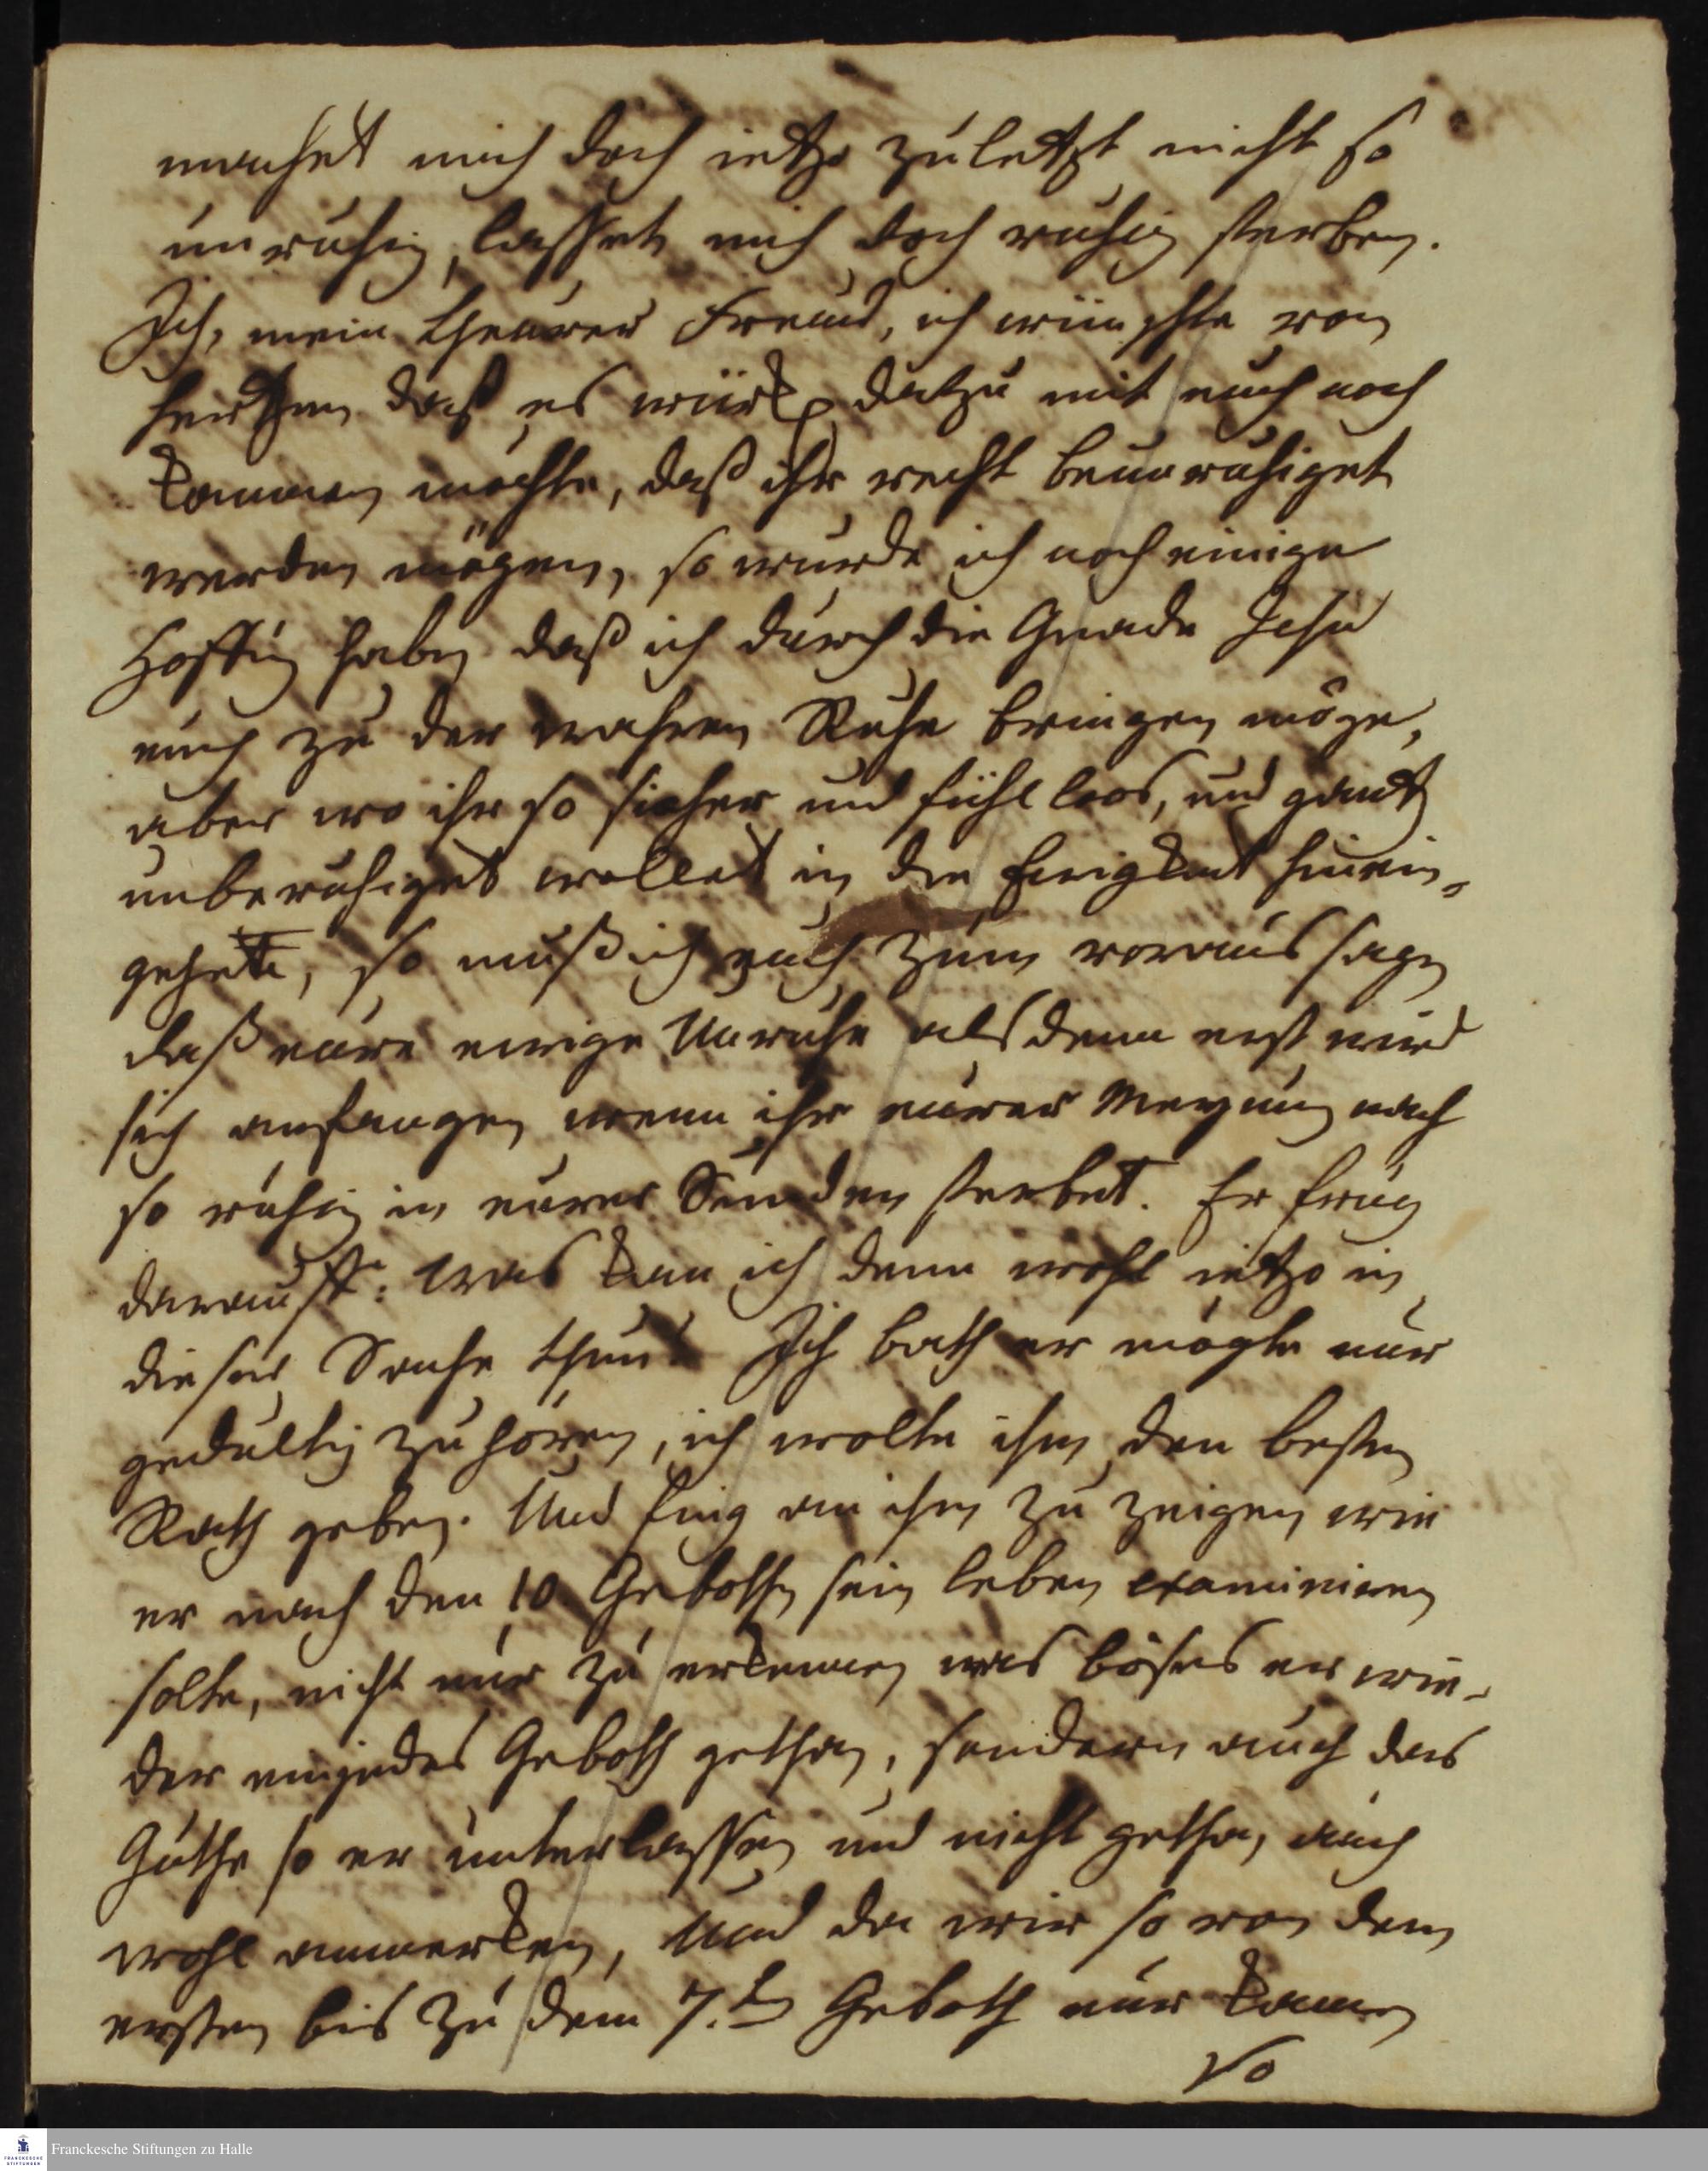 machet mich doch ietzo zuletzt nicht so
unruhig, lasset mich doch ruhig sterben.
Ich, mein theurer Freund, ich wünschte von
hertzen daß es würkl. dazu mit euch noch
kommen möchte, daß ihr recht beunruhiget
werden mögen, so wurde ich noch einige
Hoffng haben daß ich durch die Gnade Jesu
euch zu der wahren Ruhe bringen möge,
aber wo ihr so sicher und fühlloos, und gantz
unberuhiget wollet in die Ewigkeit hinein-
gehen, so muß ich euch zum voraus sagen
daß eure ewige Unruhe alsdenn erst wird
sich anfangen wenn ihr eurer Meynung nach
so ruhig in euren Sünden sterbet. Er frug
darauff: was kan ich denn wohl ietzo in
dieser Sache thun? Ich bath er mögte nur
gedultig zuhören, ich wolte ihm den besten
Rath geben. Und fing an ihm zu zeigen wie
er nach den 10. Gebothen sein leben examiniren
solte, nicht nur zu erkennen was böses er wie-
der einjedes Geboth gethan, sondern auch das
Guthe so er unterlassen und nicht gethan, auch
wohl anmerken, Und da wir so von dem
ersten bis zu dem 7.ten Geboth nur kamen
so
Franckesche Stiftungen zu Halle